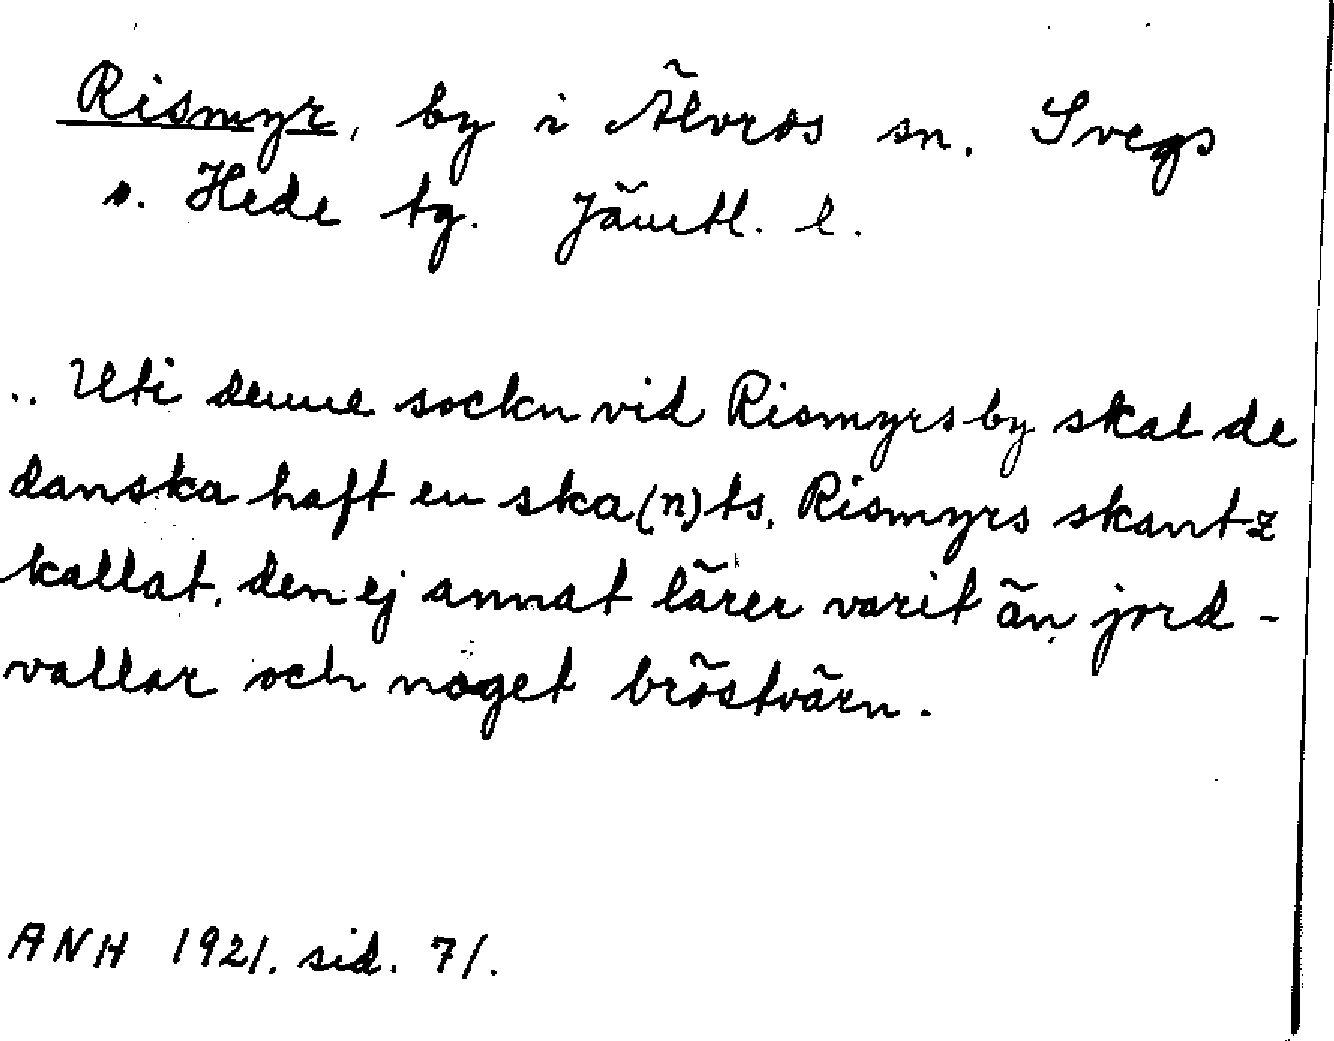 Rismyr, by i Älvros sn. Svegs
o. Hede tg. Jämtl. l.
.. Uti denne sockn vid Rismyrs by skal de
danska haft en ska(n)ts, Rismyrs skantz
kallat, den ej annat lärer varit än jord-
vallar och noget bröstvärn.
ANH 1921. sid. 71.